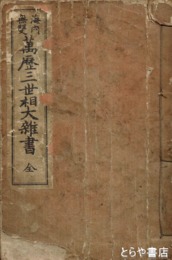 海内
無双
萬歴三世相大雑書 全
とらや書店